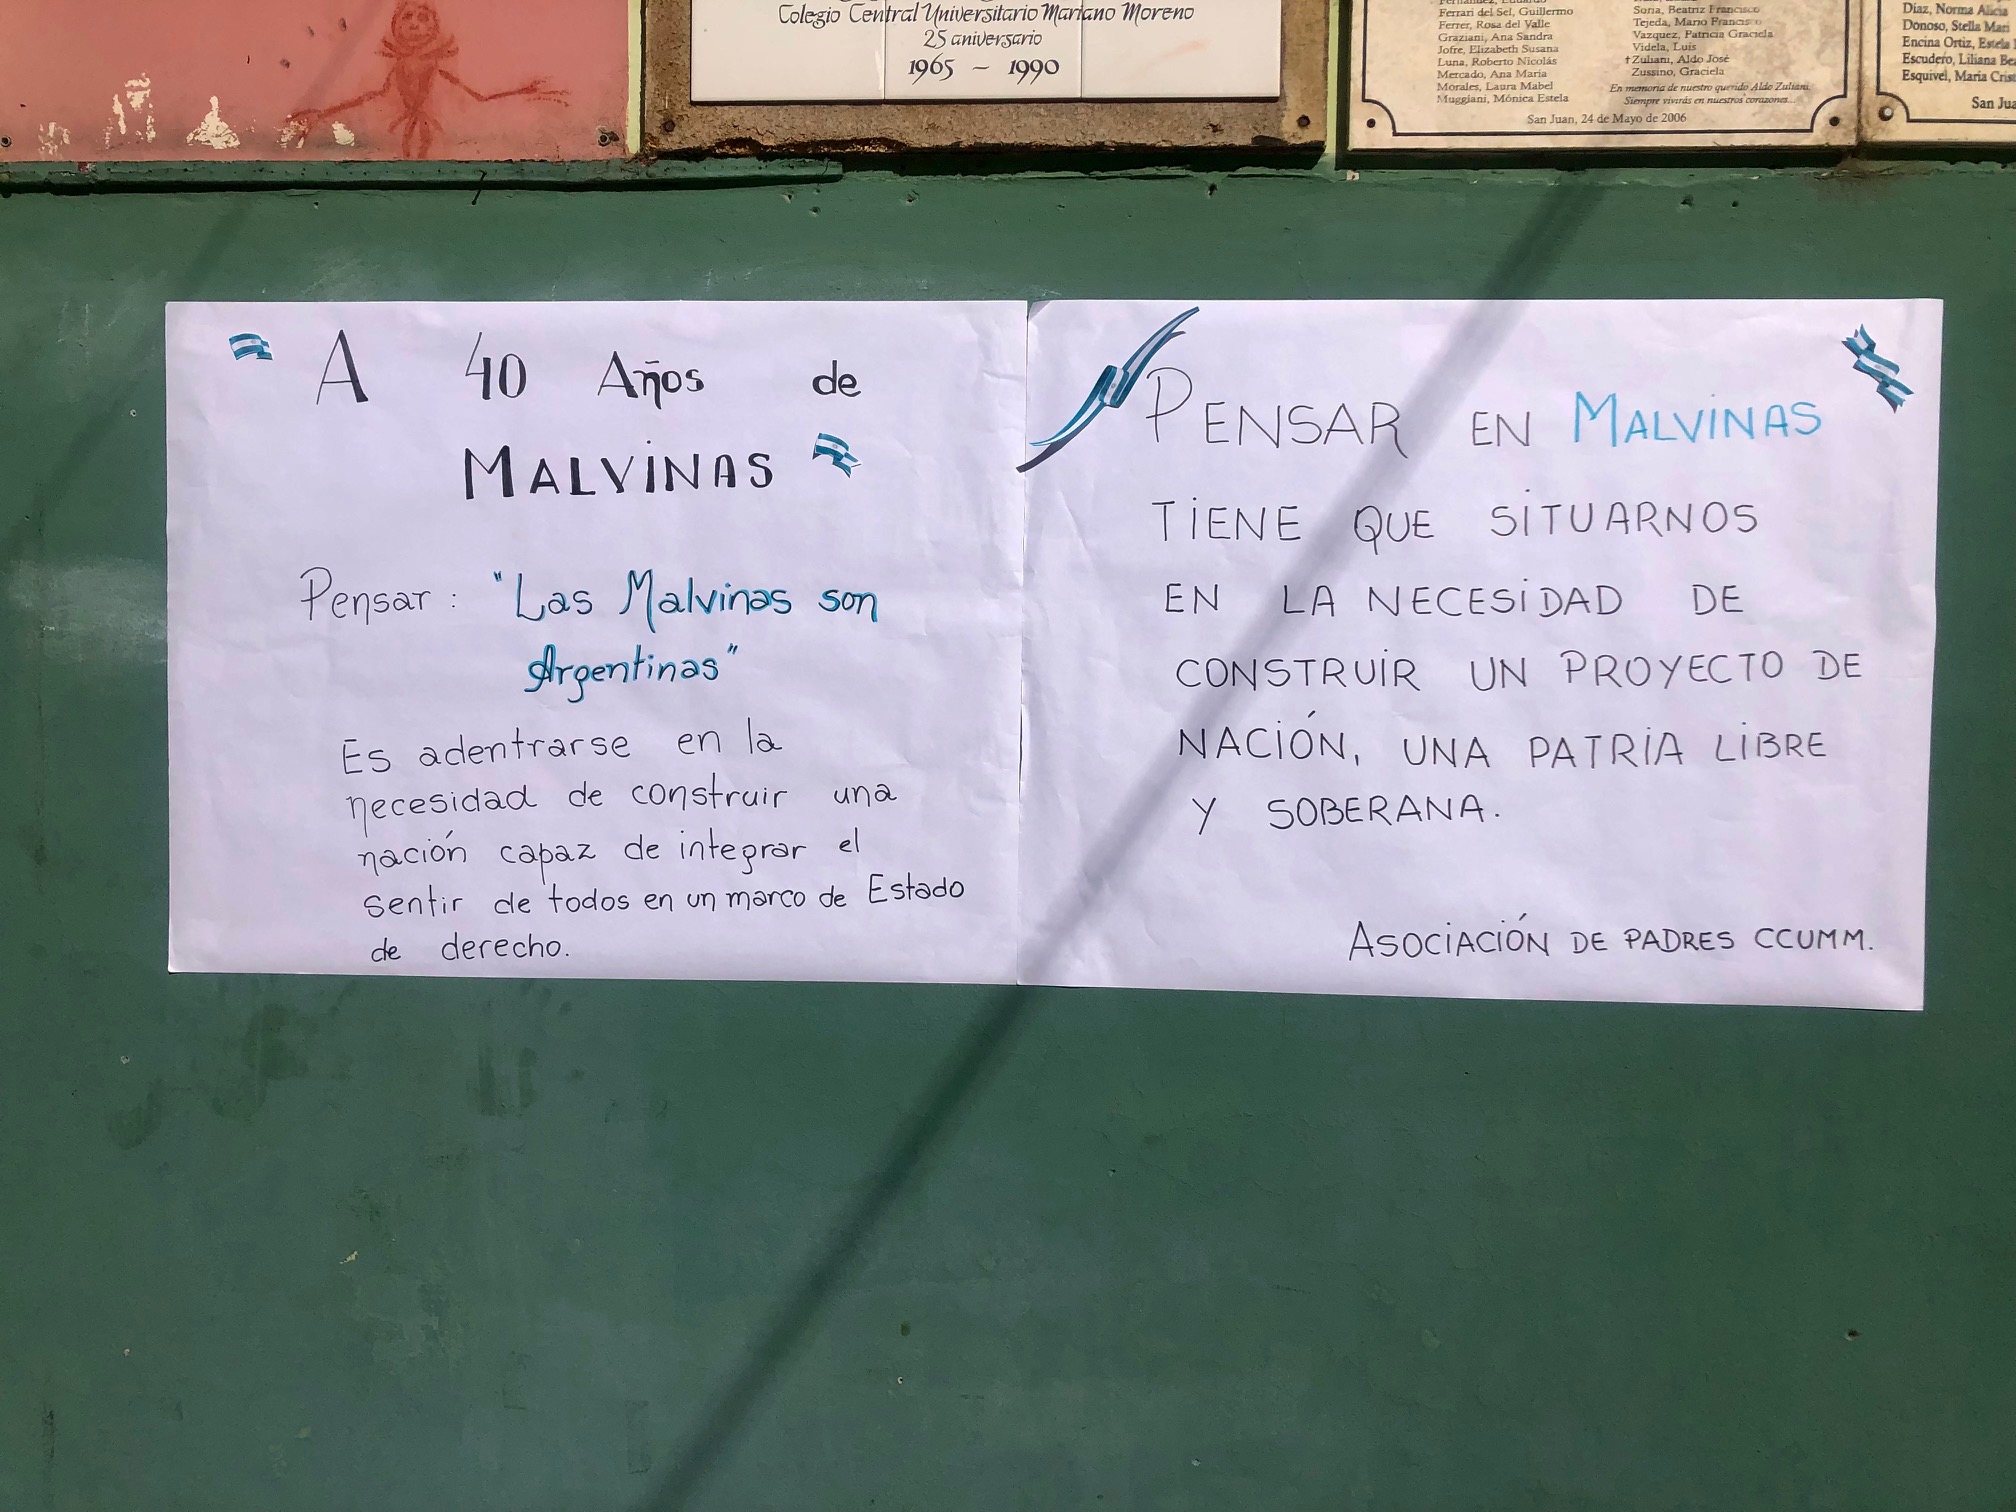 Colegio Central Universitario Mariano Moreno
25 aniversario
1965 – 1990
Ferrari del Sel, Guillermo
Ferrer, Rosa del Valle
Graziani, Ana Sandra
Jofre, Elizabeth Susana
Luna, Roberto Nicolás
Mercado, Ana Maria
Morales, Laura Mabel
Muggiani, Mónica Estela
Soria, Beatriz Francisco
Tejeda, Mario Francisco
Vazquez, Patricia Graciela
Videla, Luis
†Zuliani, Aldo José
Zussino, Graciela
En memoria de nuestro querido Aldo Zuliani.
Siempre vivirás en nuestros corazones...
San Juan, 24 de Mayo de 2006
Díaz, Norma Alicia
Donoso, Stella Mari
Encina Ortiz, Estela
Escudero, Liliana Bea
Esquivel, Maria Crist
San Jua
A 40 Años de
MALVINAS
Pensar: "Las Malvinas son
Argentinas"
Es adentrarse en la
necesidad de construir una
nación capaz de integrar el
sentir de todos en un marco de Estado
de derecho.
PENSAR EN MALVINAS
TIENE QUE SITUARNOS
EN LA NECESIDAD DE
CONSTRUIR UN PROYECTO DE
NACIÓN, UNA PATRIA LIBRE
Y SOBERANA.
ASOCIACIÓN DE PADRES CCUMM.